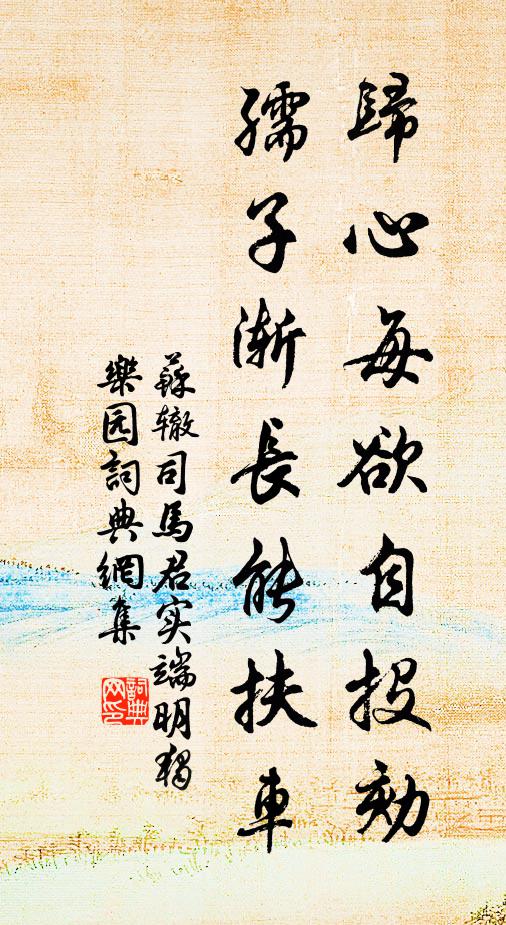 歸心每欲自投劾
孺子漸長能扶車
蘇辙司馬君实端明獨
樂园詞典網集
詞典
网印